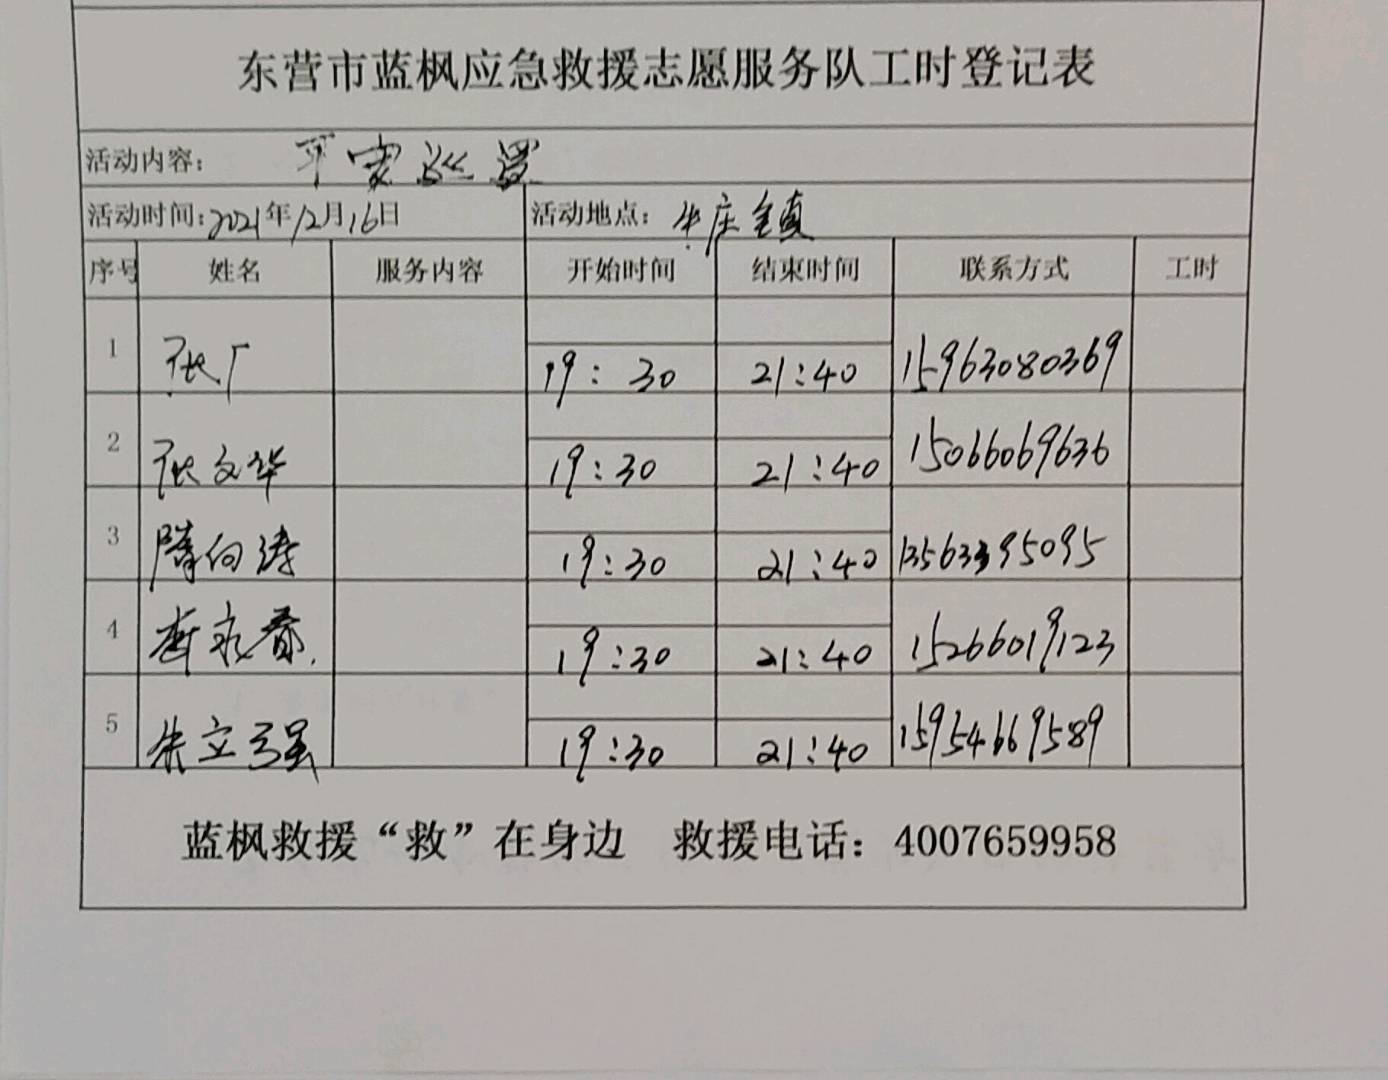 东营市蓝枫应急救援志愿服务队工时登记表
活动内容: 平安巡逻
活动时间:2021年12月16日 活动地点: 牛庄镇
序号 姓名 服务内容 开始时间 结束时间 联系方式 工时
1 张广 19:30 21:40 15963080369
2 张文华 19:30 21:40 15066069636
3 隋向涛 19:30 21:40 13563395095
4 李永春 19:30 21:40 15266019123
5 朱立强 19:30 21:40 15954669589
蓝枫救援“救”在身边 救援电话:4007659958